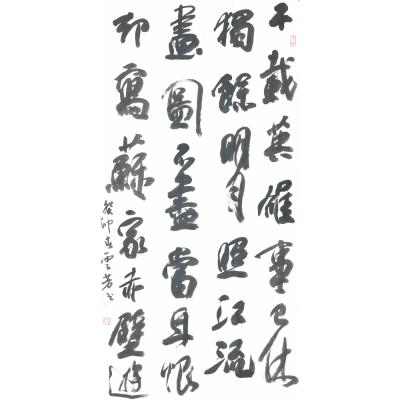 千載英雄事已休
獨餘明月照江流
畫圖不盡當日恨
却寫蘇家赤壁遊
癸卯春雲芳书